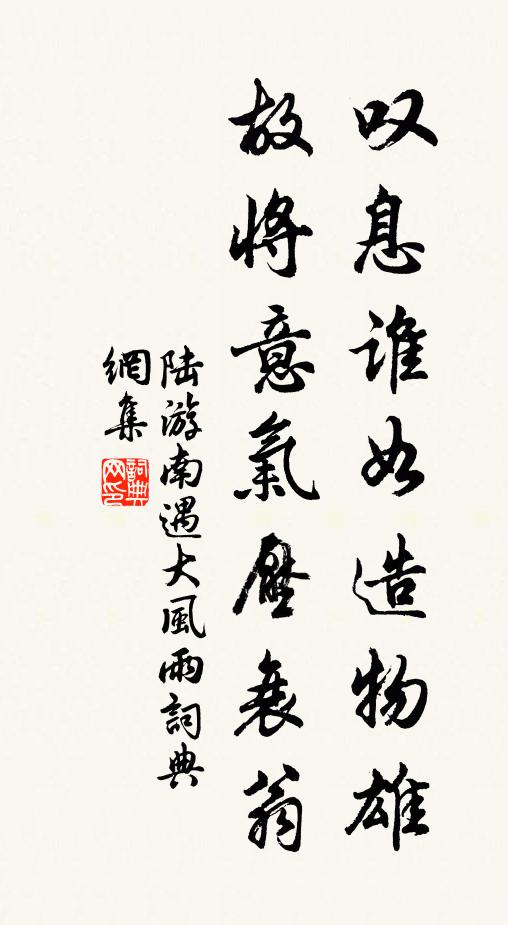 叹息谁如造物雄
故将意氣壓衰翁
陆游南遇大風雨詞典
網集
詞典
网印